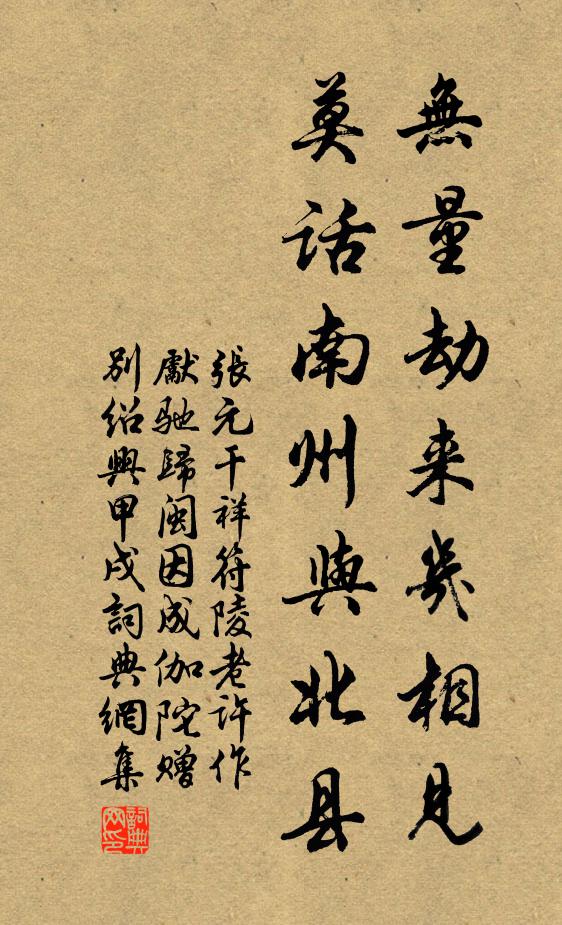 無量劫来幾相見
莫话南州與北县
張元干祥符陵老许作
獻馳歸闽因成伽陀赠
别绍興甲戌詞典網集
詞典网印